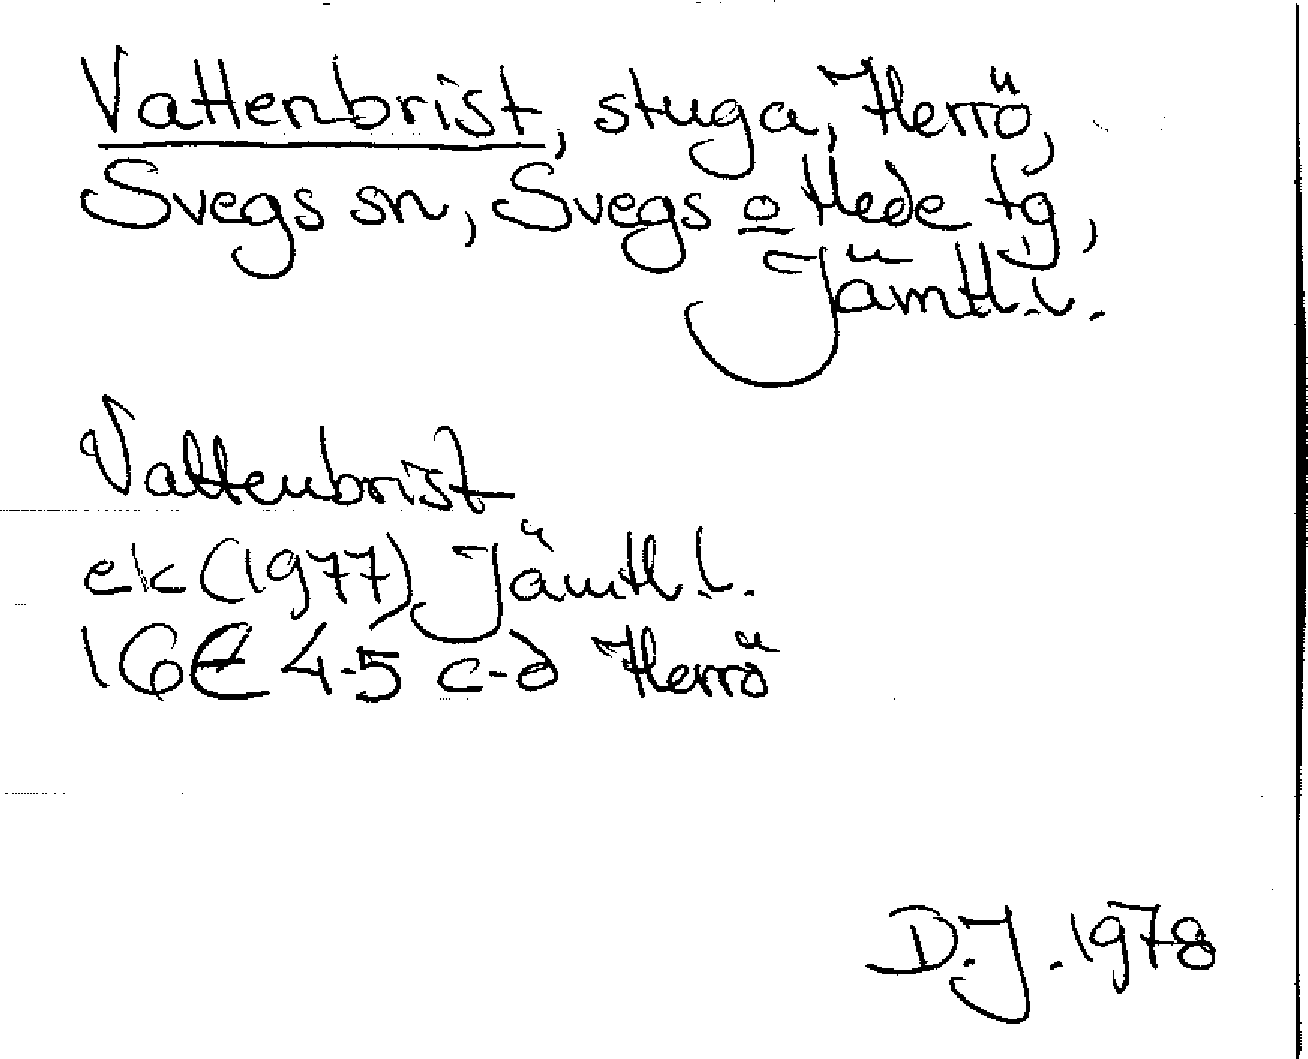 Vattenbrist, stuga, Herrö,
Svegs sn, Svegs o Hede tg,
Jämtl. l.
Vattenbrist
ek (1977) Jämtl. l.
16E 4-5 c-d Herrö
D.J. 1978